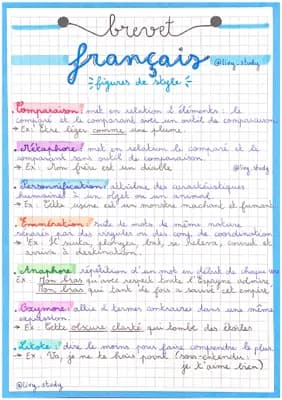 brevet
français
@livy_study
figures de style
• Comparaison : met en relation 2 éléments : le
comparé et le comparant avec un outil de comparaison.
→ Ex : Être léger comme une plume.
• Métaphore : met en relation le comparé et le
comparant sans outil de comparaison.
→ Ex : Mon frère est un diable
• Personnification : attribue des caractéristiques
humaines à un objet ou un animal.
→ Ex : Cette usine est un monstre machant et fumant
• Énumération : suite de mots de même nature
séparés par des virgules ou des conj. de coordination
→ Ex : Il sauta, plongea, but, se releva, courut et
arriva à destination.
• Anaphore : répétition d'un mot en début de chaque
→ Ex : Mon bras qu'avec respect toute l'Espagne admire,
Mon bras qui tant de fois a sauvé cet empire
• Oxymore : allie 2 termes contraires dans une même
expression.
→ Ex : Cette obscure clarté qui tombe des étoiles
• Litote : dire le moins pour faire comprendre le plus.
→ Ex : Va, je ne te hais point (sous-entendu :
je t'aime bien)